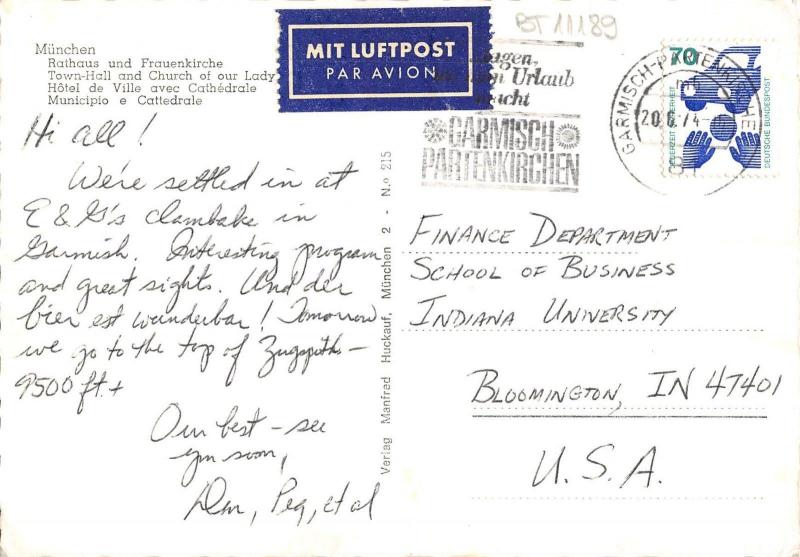 München
Rathaus und Frauenkirche
Town-Hall and Church of our Lady
Hôtel de Ville avec Cathédrale
Municipio e Cattedrale
MIT LUFTPOST
PAR AVION
BT 11189
Urlaub
GARMISCH
PARTENKIRCHEN
GARMISCH-PARTENKIRCHE
20.6.74
70
JEDERZEIT SICHERHEIT
DEUTSCHE BUNDESPOST
Hi all!
We're settled in at
E & G's clambake in
Garmish. Interesting program
and great sights. Und der
bier est wunderbar! Tomorrow
we go to the top of Zugspitz –
9500 ft. +
Our best – see
you soon,
Peg, et al
Verlag Manfred Huckauf, München 2 - N.o 215
FINANCE DEPARTMENT
SCHOOL OF BUSINESS
INDIANA UNIVERSITY
BLOOMINGTON, IN 47401
U.S.A.